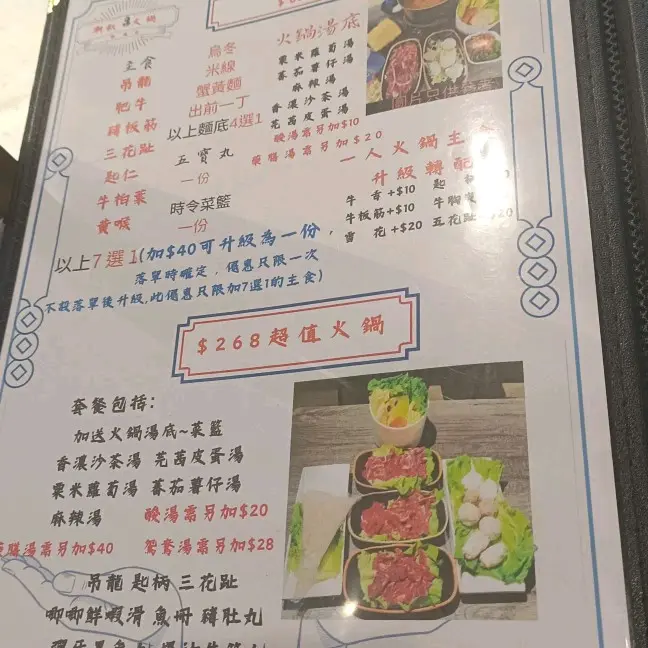 主食
吊龍
肥牛
豬板筋
三花趾
匙仁
牛柏葉
黃喉
以上7選1(加$40可升級為一份,
落單時確定,優惠只限一次
不設落單後升級,此優惠只限加7選1的主食)
烏冬
米線
蟹黃麵
出前一丁
以上麵底4選1
五寶丸
一份
時令菜籃
一份
火鍋湯底
粟米蘿蔔湯
蕃茄薯仔湯
麻辣湯
香濃沙茶湯
芫茜皮蛋湯
晚湯需另加$10
藥膳湯需另加$20
圖片只供參考
一人火鍋主食
升級轉配
牛舌+$10
牛板筋+$10 牛胸
雪花+$20 五花趾 $20
$268超值火鍋
套餐包括:
加送火鍋湯底~菜籃
香濃沙茶湯 芫茜皮蛋湯
粟米蘿蔔湯 蕃茄薯仔湯
麻辣湯 晚湯需另加$20
膳湯需另加$40 鴛鴦湯需另加$28
吊龍 匙柄 三花趾
唧唧鮮蝦滑 魚冊 豬肚丸